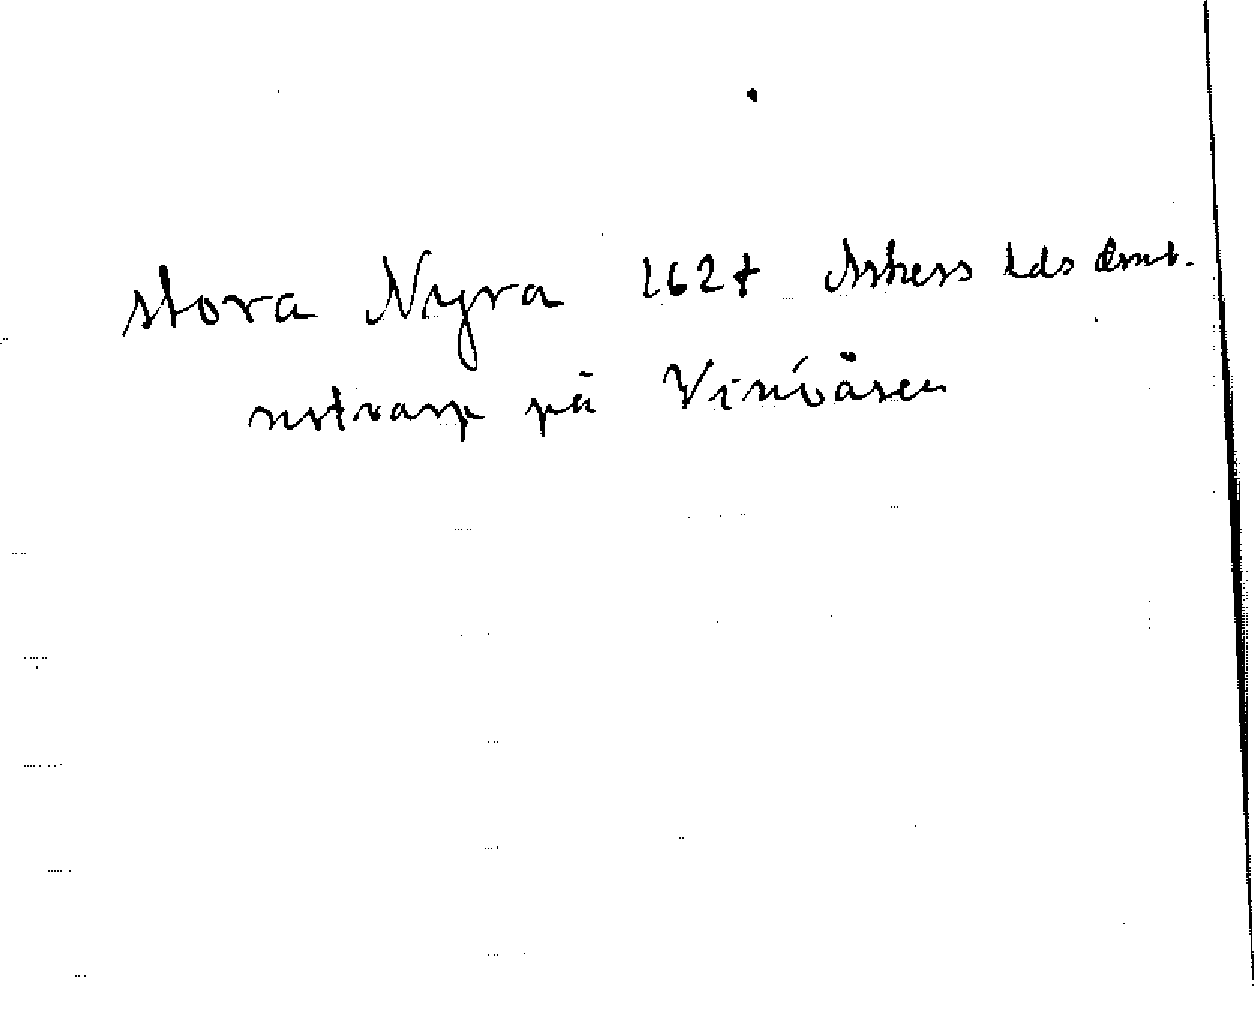 stora Nyra 1627 Askers hds dmb.
notvarp på Vinöåsen